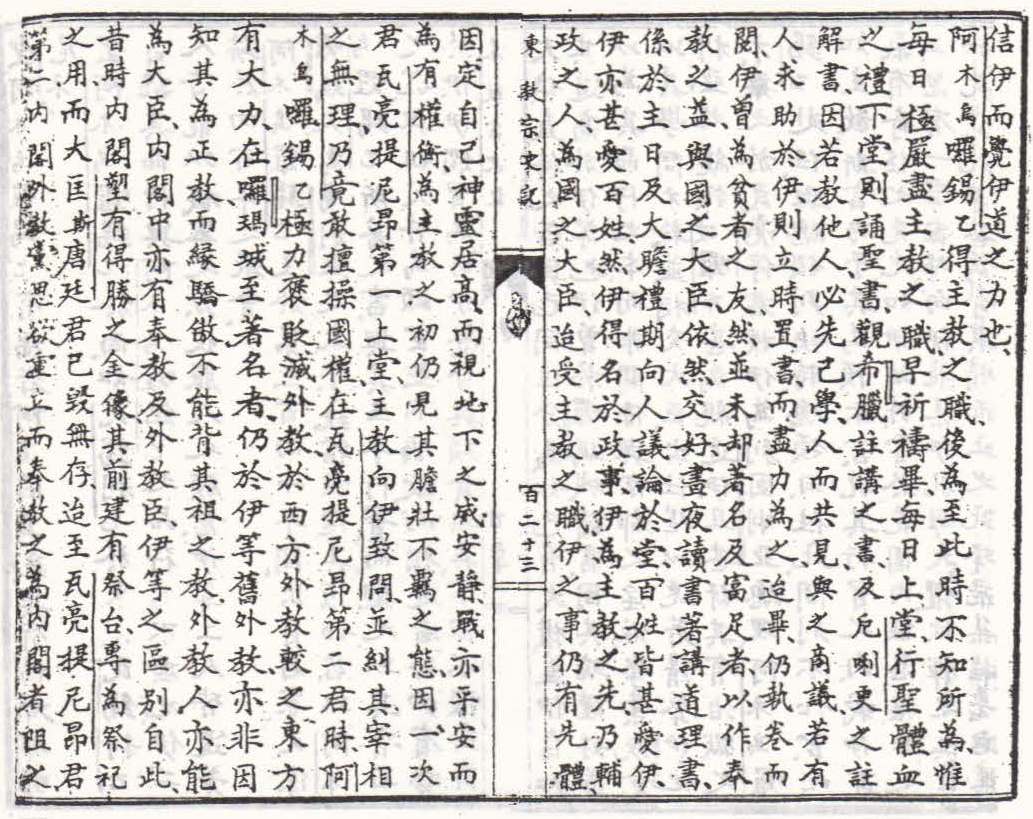 信伊而覺伊道之力也、
阿木烏囉錫乙得主教之職、後為至此時不知所為、惟
每日極嚴盡主教之職、早祈禱畢、每日上堂、行聖體血
之禮、下堂則誦聖書、觀希臘註講之書、及厄喇更之註
解書、因若教他人、必先己學、人而共見、與之商議、若有
人求助於伊、則立時置書、而盡力為之、迨畢、仍執卷而
閱、伊曾為貧者之友、然並未却著名及富足者、以作奉
教之益、與國之大臣、依然交好、晝夜讀書、著講道理書、
係於主日及大瞻禮期向人議論於堂、百姓皆甚愛伊、
伊亦甚愛百姓、然伊得名於政事、伊為主教之先、乃輔
政之人、為國之大臣、迨受主教之職、伊之事仍有先體、
東教宗史記
百二十三
因定自己神靈居高而視地下之成安靜戰亦平安而
為有權衡、為主教之初、仍見其膽壯不羈之態、因一次
君瓦亮提尼昂第一上堂、主教向伊致問、並糾其宰相
之無理、乃竟敢擅操國權、在瓦亮提尼昂第二君時、阿
木烏囉錫乙極力褒貶滅外教、於西方外教較之東方
有大力、在囉瑪城至著名者、仍於伊等舊外教、亦非因
知其為正教、而緣驕傲不能背其祖之教、外教人亦能
為大臣、內閣中亦有奉教及外教臣、伊等之區別自此、
昔時內閣塑有得勝之全像、其前建有祭台、專為祭祀
之用、而大匡斯唐廷君已毀無存、迨至瓦亮提尼昂君
第二內閣外教黨思欲重立而奉教之為內閣者阻之